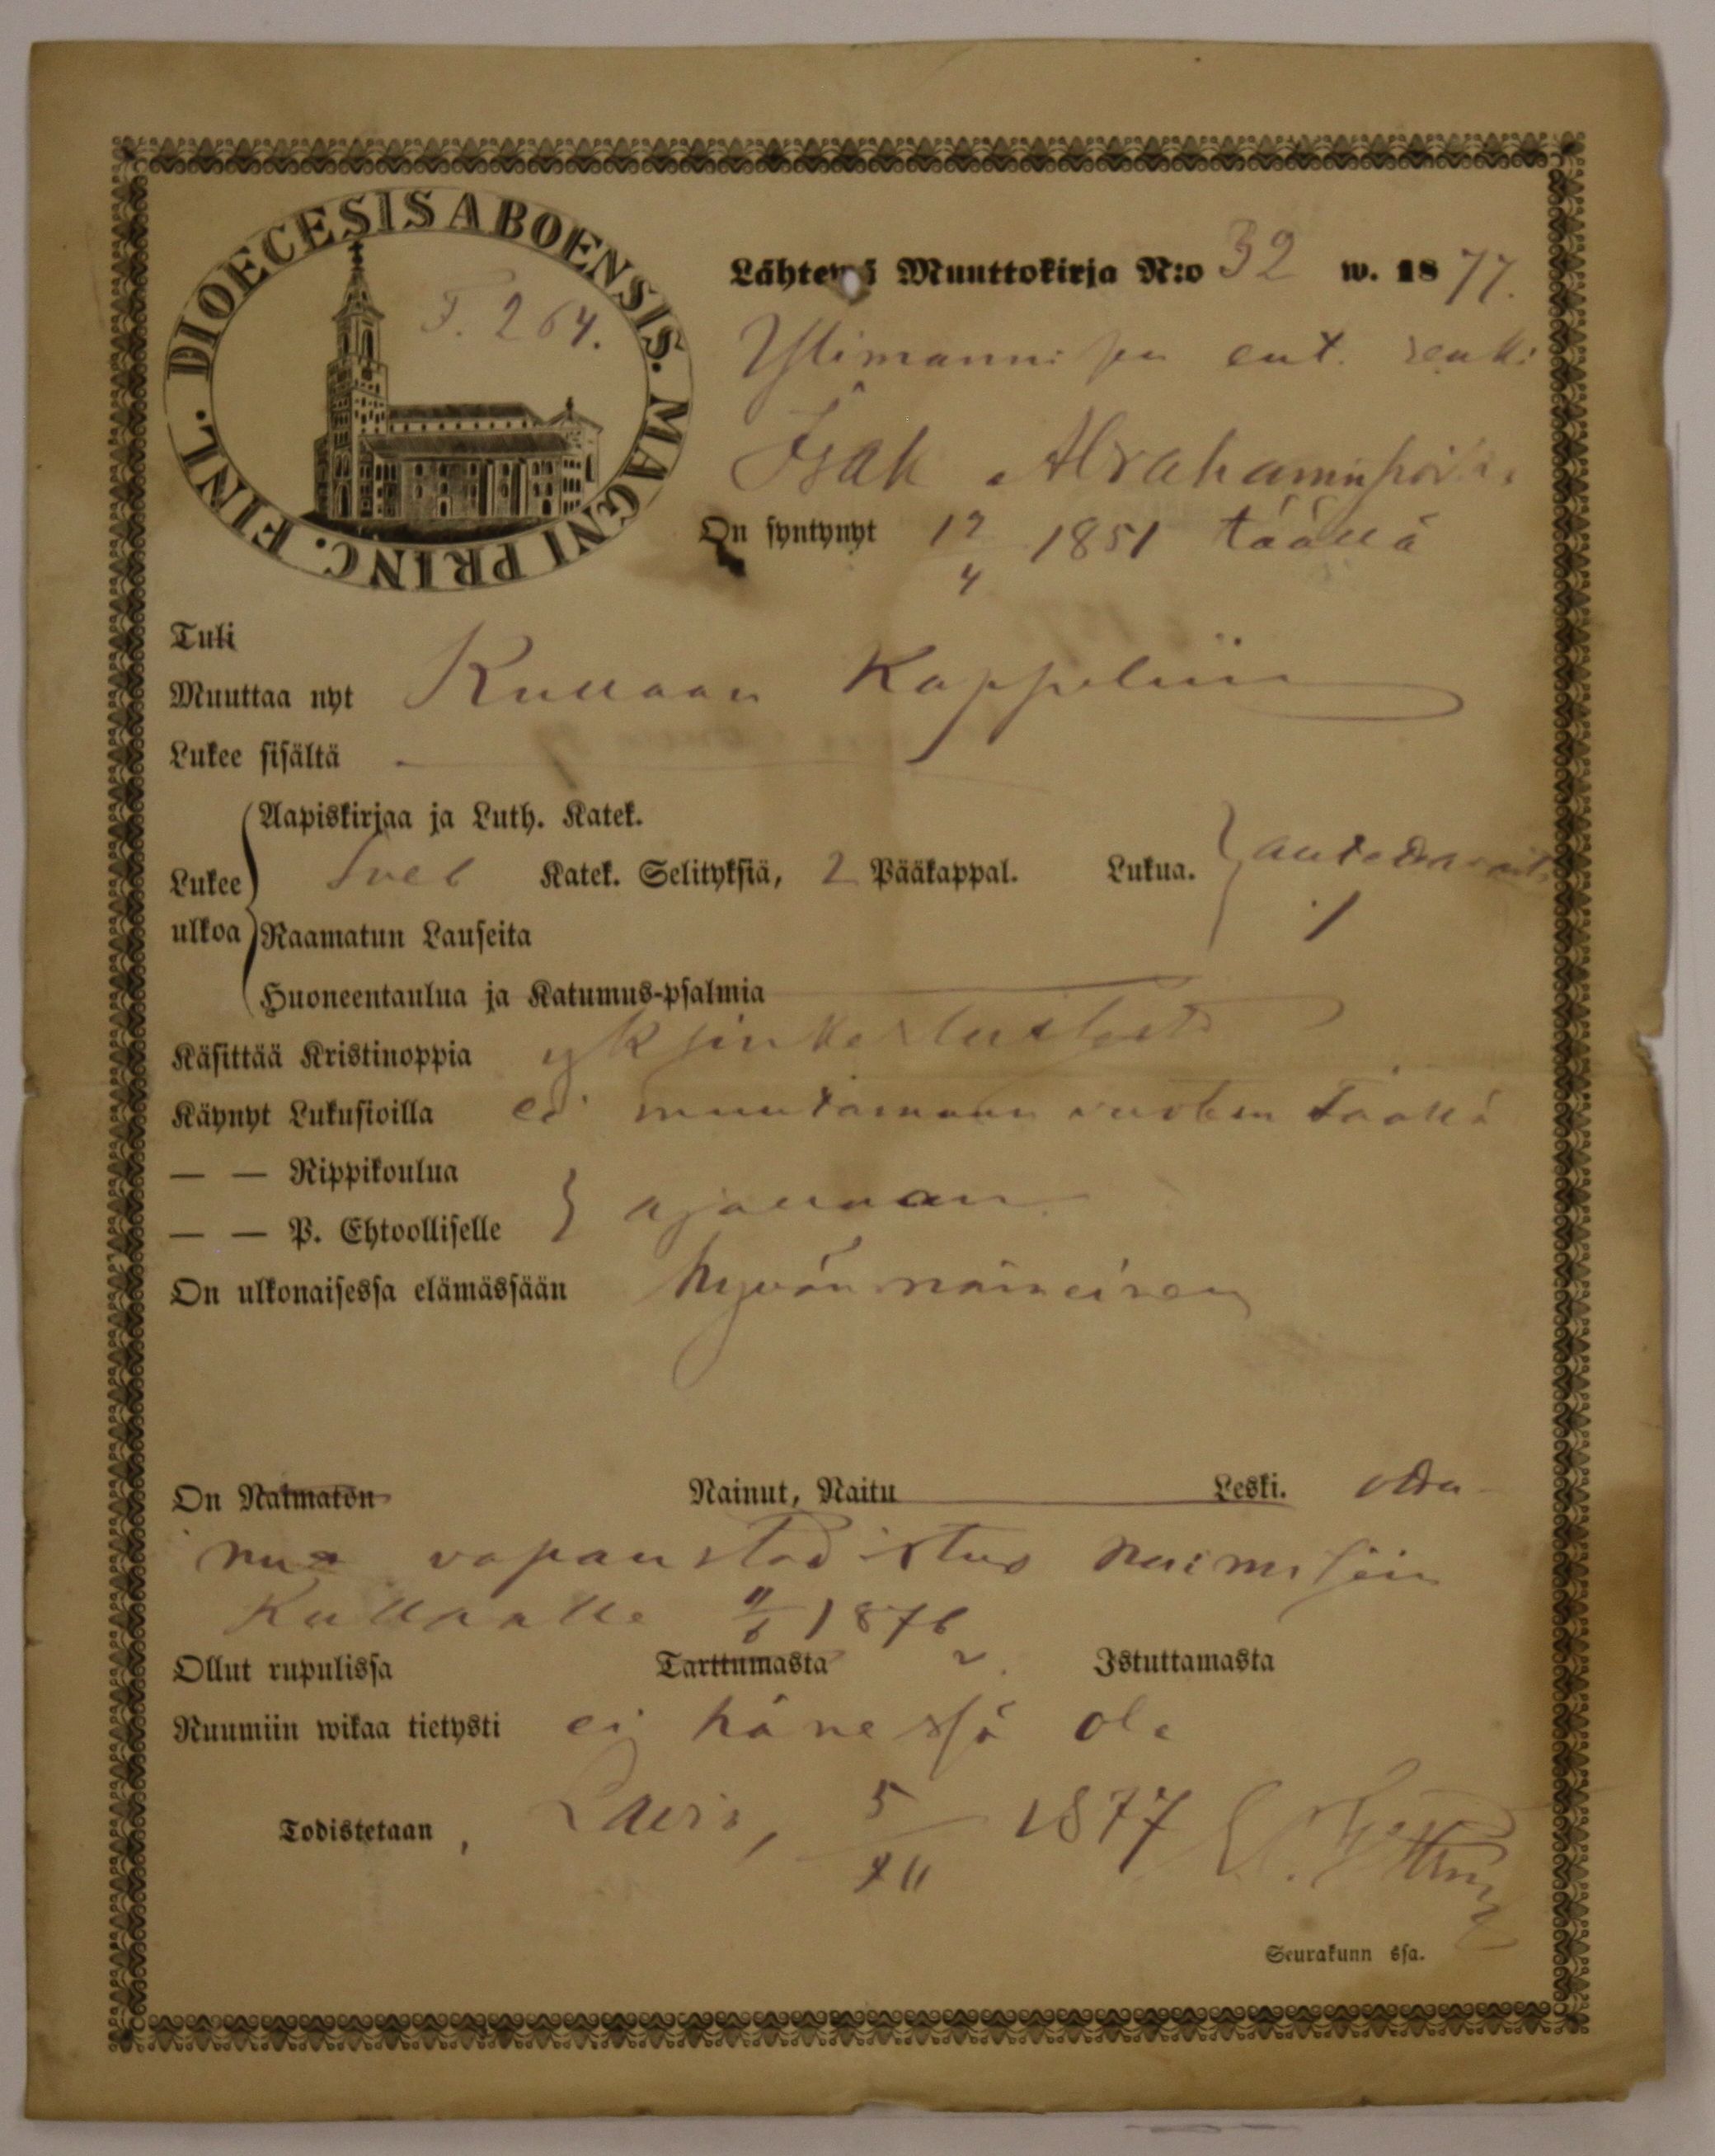 DIOECESIS ABOENSIS. MAGNI PRINC. FINL.
T. 264.
Lähtewä Muuttokirja N:o 32 w. 1877.
ent. renki
Isak Abrahaminpoika
On syntynyt 12/4 1851 täällä
Tuli
Muuttaa nyt Kullaan Kappeliin
Lukee sisältä
Aapiskirjaa ja Luth. Katek.
Lukee ulkoa Sveb Katek. Selityksiä, 2 Pääkappal. Lukua.
Raamatun Lauseita
Huoneentaulua ja Katumus-psalmia
Käsittää Kristinoppia yksinkertaisesti
Käynyt Lukusioilla ei muutamaan vuoteen täällä
— — Rippikoulua
— — P. Ehtoolliselle } ajallaan
On ulkonaisessa elämässään hyvän maineinen
On Naimaton Nainut, Naitu Leski. otta-
nut vapaustodistus naimisiin
Kullaalle 11/6 1876
Ollut rupulissa Tarttumasta Istuttamasta
Ruumiin wikaa tietysti ei hänessä ole
Todistetaan, Lavia, 5/11 1877
Seurakunn ssa.